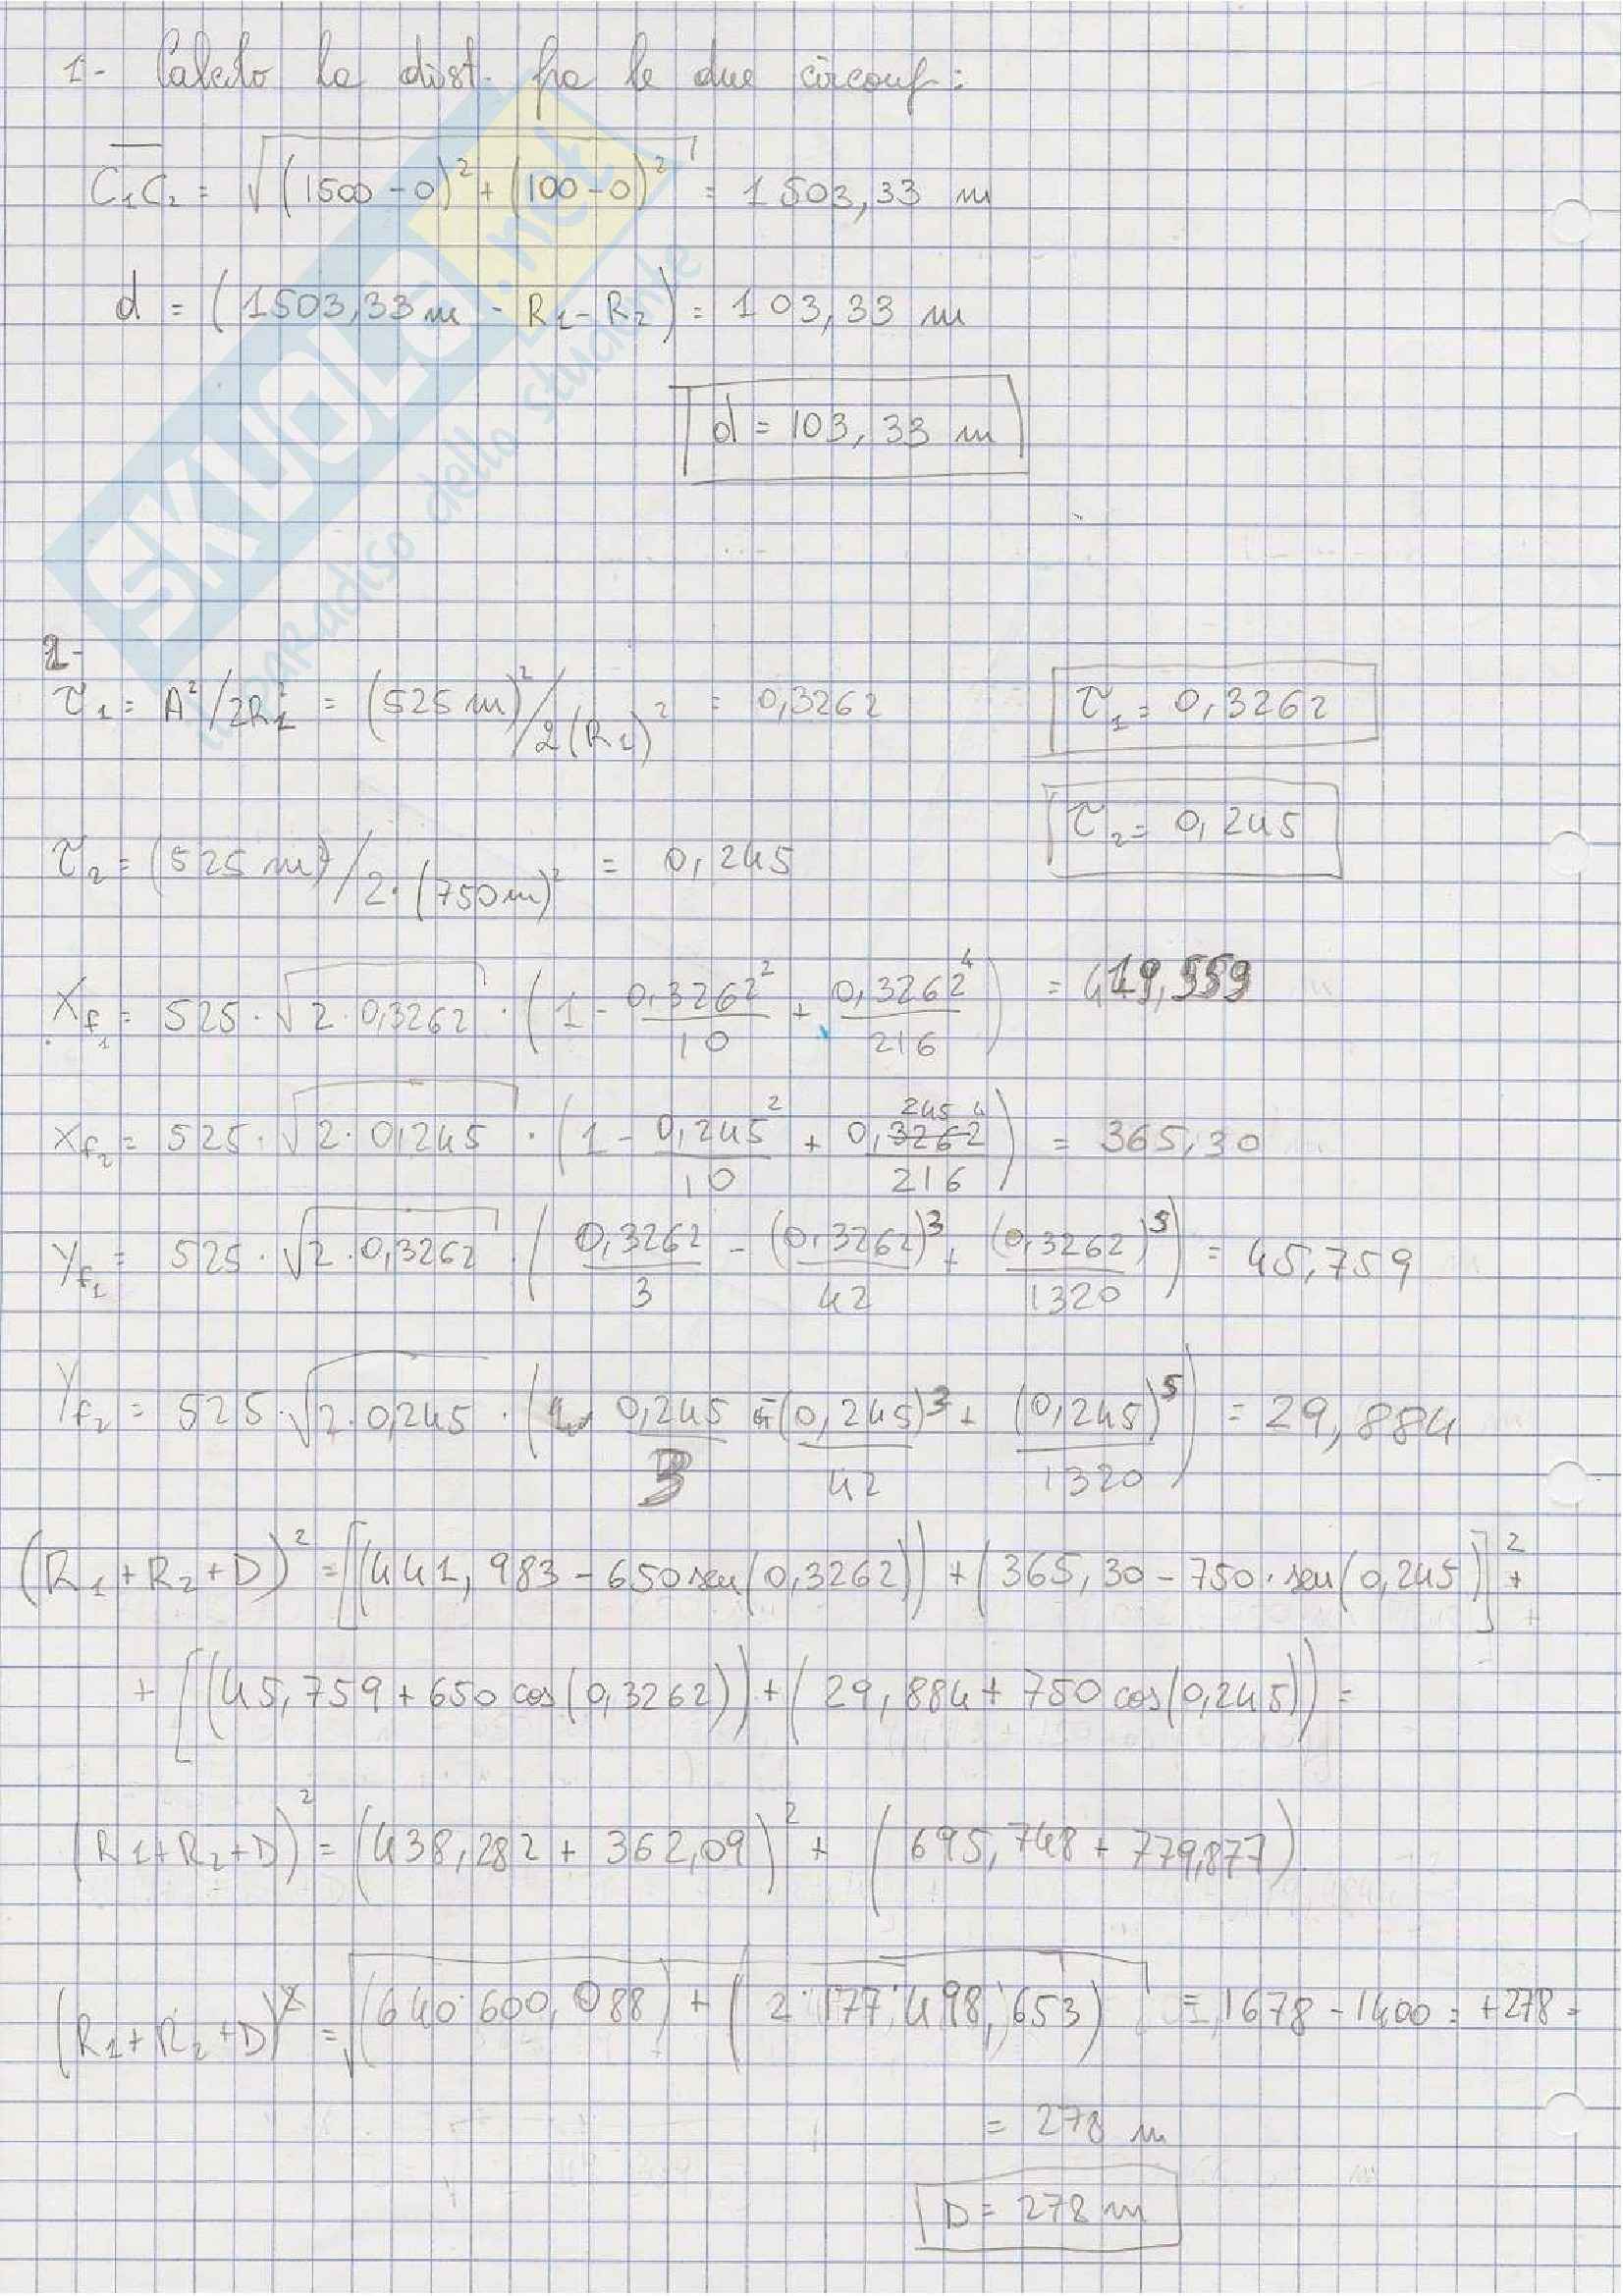 1- Calcolo la dist. fra le due circonf:
C₁C₂ = √((1500-0)² + (100-0)²) = 1503,33 m
d = (1503,33 m - R₁ - R₂) = 103,33 m
d = 103,33 m
SKUOLA.net
il paradiso dello studente
2-
τ₁ = A²/2R₁² = (525 m)²/2(R₁)² = 0,3262
τ₁ = 0,3262
τ₂ = 0,245
τ₂ = (525 m)²/2·(750m)² = 0,245
Xf₁ = 525·√(2·0,3262) · (1 - 0,3262²/10 + 0,3262⁴/216) =
Xf₂ = 525·√(2·0,245) · (1 - 0,245²/10 + 0,245⁴/216) = 365,30
Yf₁ = 525·√(2·0,3262) · (0,3262/3 - (0,3262)³/42 + (0,3262)⁵/1320) = 45,759
Yf₂ = 525·√(2·0,245) · (0,245/3 - (0,245)³/42 + (0,245)⁵/1320) = 29,884
(R₁+R₂+D)² = [(441,983 - 650 sen(0,3262)) + (365,30 - 750·sen(0,245)]² +
+ [(45,759 + 650 cos(0,3262)) + (29,884 + 750 cos(0,245)) =
(R₁+R₂+D)² = (438,282 + 362,09)² + (695,748 + 779,877)
(R₁+R₂+D) = √((640·600,088) + (2·177·498,653)) = 1678 - 1400 = +278 =
= 278 m
D = 278 m